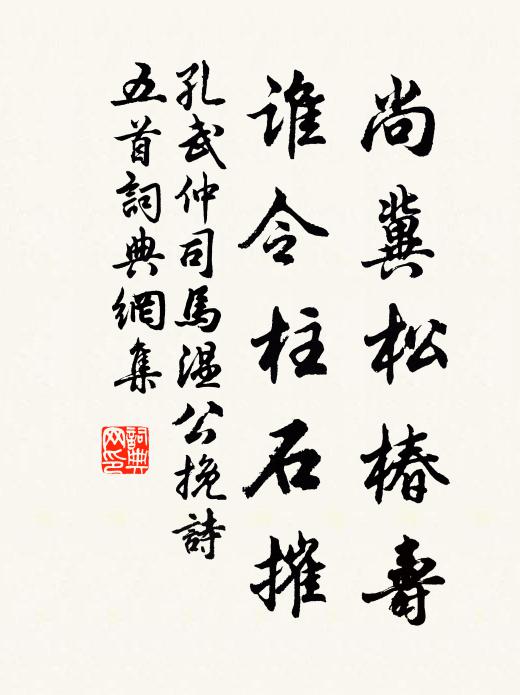 尚冀松椿壽
誰令柱石摧
孔武仲司馬溫公挽詩
五首詞典網集
詞典網印